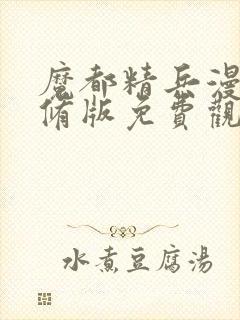 魔都精兵漫
脩版免費觀
水煮豆腐湯